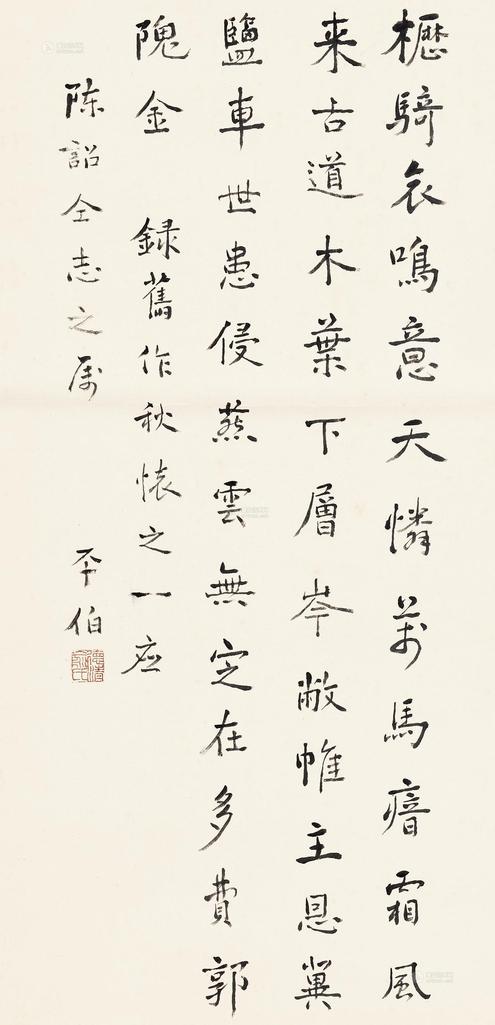 櫪騎哀鳴意天憐萬馬瘖霜風
来古道木葉下層岑敝帷主恩冀
鹽車世患侵燕雲無定在多費郭
隗金 録舊作秋懷之一应
陈詔仝志之属
平伯
德清俞氏